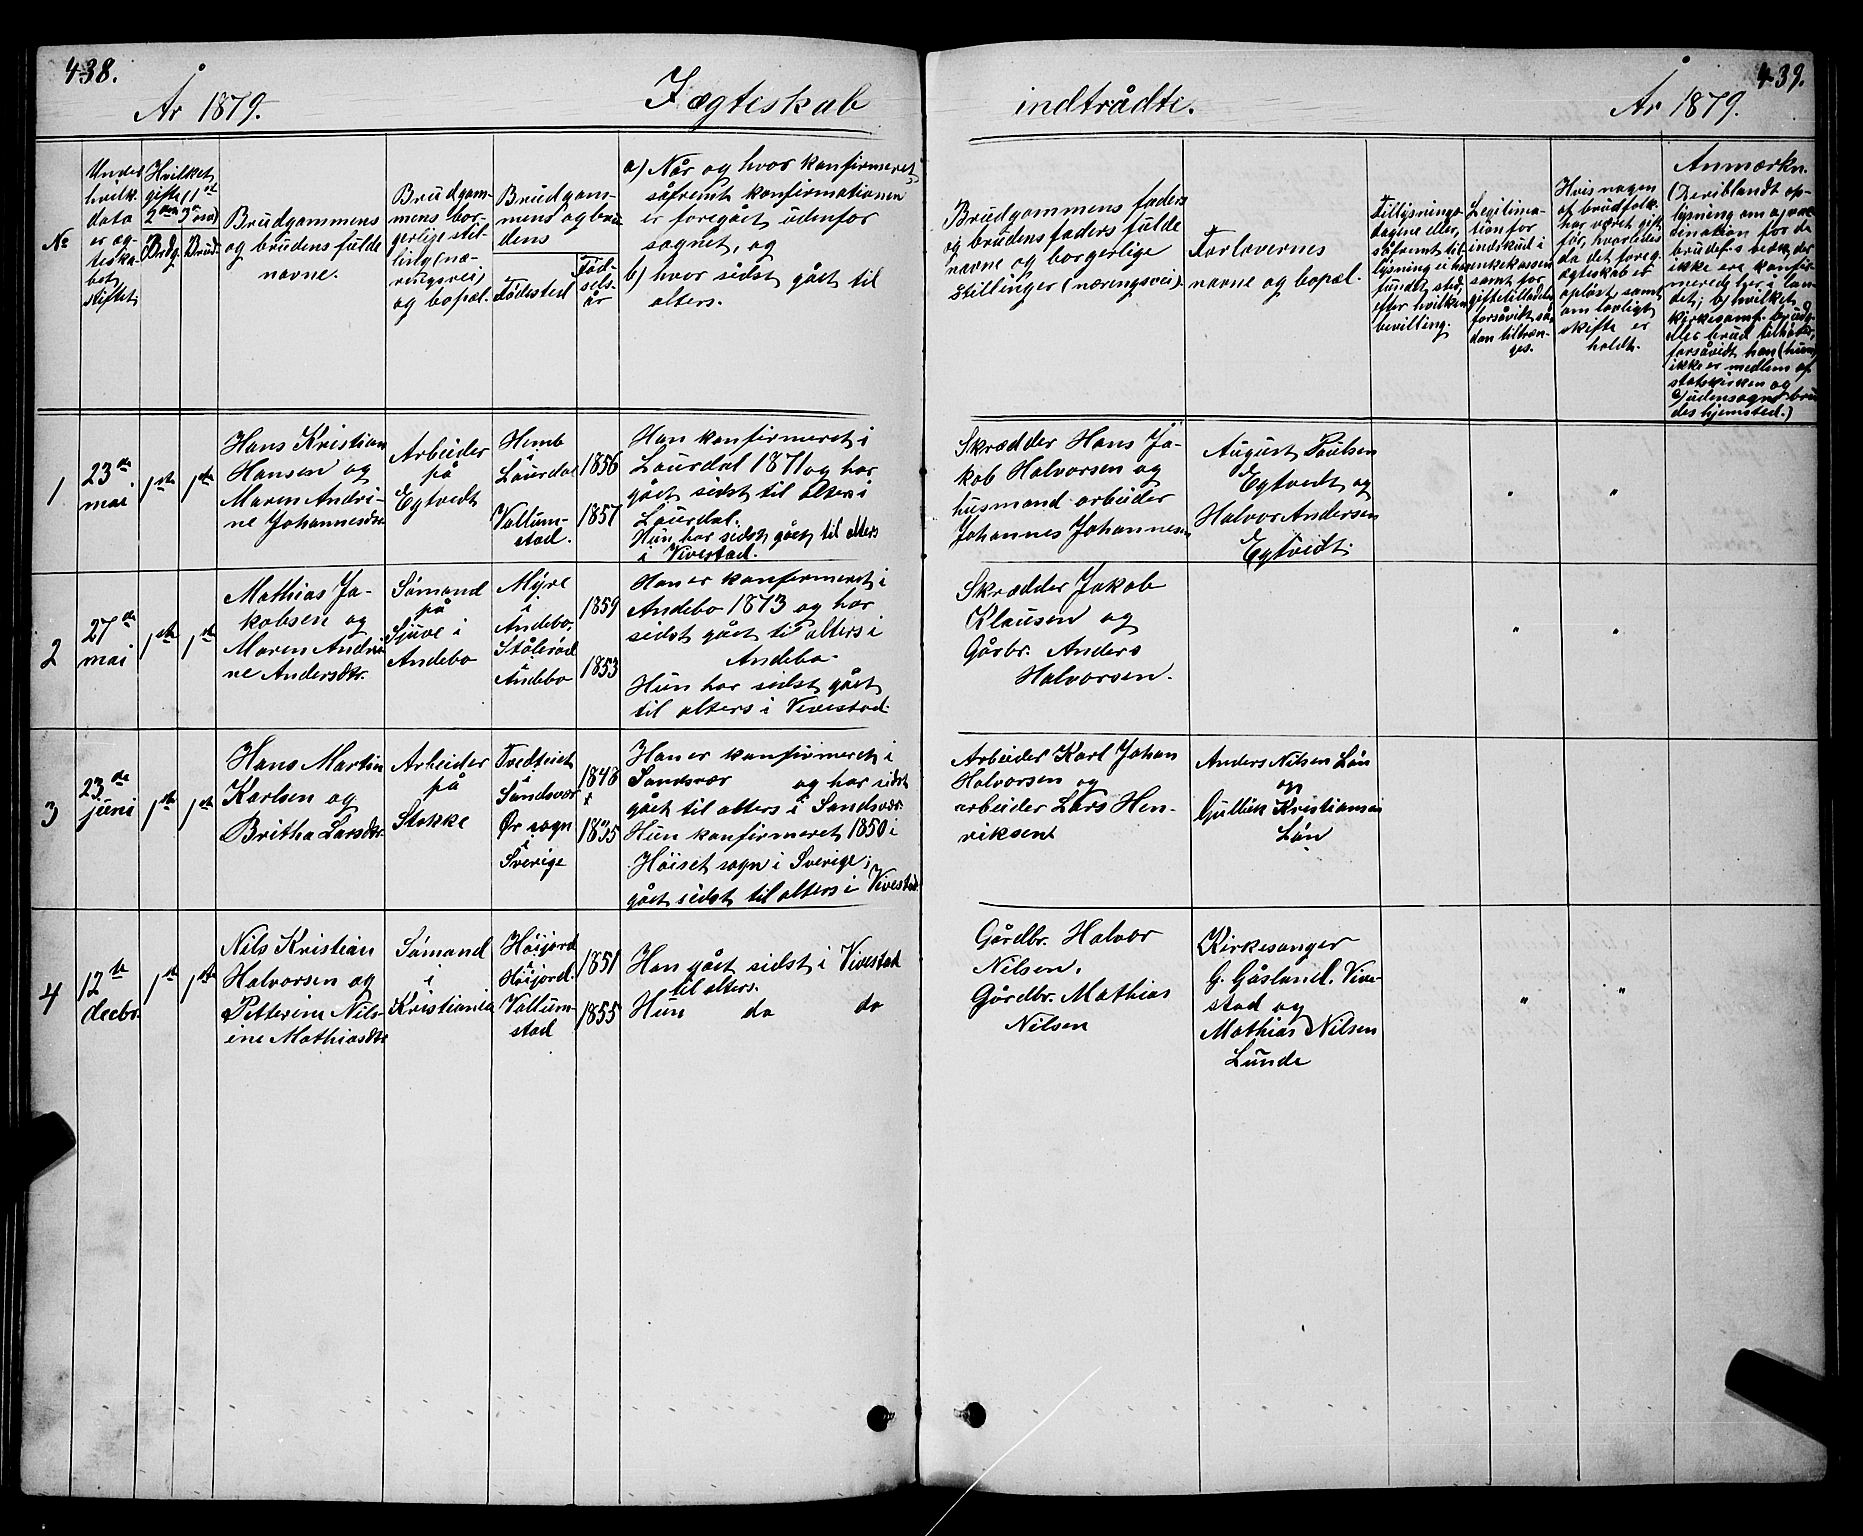 438.
År 1879.
I ægteskab
indtrådte.
År 1879.
439.
№
Under
hvilk.
data
er æg-
teska-
bet
stiftet
Hvilket
gifte (1ste
2den 3die)
Brdg.
Brud.
Brudgommens
og brudens fulde
navne.
Brudgom-
mens bor-
gerlige stil-
ling (næ-
ringsvei)
og bopæl.
Brudgom-
mens og bru-
dens
Fødested
Fød-
sels-
år
a) Når og hvor konfirmeret,
såfremt konfirmationen
er foregået udenfor
sognet, og
b) hvor sidst gået til
alters.
Brudgommens faders
og brudens faders fulde
navne og borgerlige
stillinger (næringsvei).
Forlovernes
navne og bopæl.
Tillysnings-
dagene eller,
såfremt til-
lysning ei har
fundet sted,
efter hvilken
bevilling.
Legitima-
tion for
indskud i
enkekassen
samt for
giftetilladelse
forsåvidt så-
dan tiltræn-
ges.
Hvis nogen
af brudfolk.
har været gift
før, hvorledes
da det foreg.
ægteskab er
opløst, samt
om lovligt
skifte er
holdt.
Anmærkn.
(Deriblandt op-
lysning om a) vac-
cination for de
brudefolk, der
ikke ere konfir-
merede her i lan-
det; b) hvilket
kirkesamf. brudg.
eller brud tilhører,
forsåvidt han (hun)
ikke er medlem af
statskirken og
c) udensogns bru-
des hjemsted.)
1
23de
mai
1ste
1ste
Hans Kristian
Hansen og
Maren Andri-
ne Johannesdtr.
Arbeider
på
Egtvedt
Hemb
Laurdal
Vallum-
stad.
1856
1857
Han konfirmeret i
Laurdal 1871 og har
gået sidst til alters i
Laurdal.
Hun har sidst gået til alters
i Vivestad.
Skrædder Hans Ja-
kob Halvorsen og
husmand arbeider
Johannes Johannesen
August Paulsen
Egtvedt og
Halvor Andersen
Egtvedt.
"
"
2
27de
mai
1ste
1ste
Mathias Ja-
kobsen og
Maren Andri-
ne Andersdtr.
Sømand
på
Sjuve i
Andebo
Myre
i
Andebo.
Stålerød
Andebo
1859
1853
Han er konfirmeret i
Andebo 1873 og har
sidst gået til alters i
Andebo.
Hun har sidst gået
til alters i Vivestad.
Skrædder Jakob
Klausen og
Gårbr. Anders
Halvorsen.
"
"
3
23de
juni
1ste
1ste
Hans Martin
Karlsen og
Britha Larsdtr.
Arbeider
på
Stokke
Tvedteiet
i
Sandsvær
Ør sogn
i
Sverige
1848
1835
Han er konfirmeret i
Sandsvær og har sidst
gået til alters i Sandsvær.
Hun konfirmeret 1850 i
Høiset sogn i Sverige,
gået sidst til alters i Vivestad.
Arbeider Karl Johan
Halvorsen og
arbeider Lars Hen-
riksen
Anders Nilsen Løn
og
Gullik Kristiansen
Løn
4
12te
decbr.
1ste
1ste
Nils Kristian
Halvorsen og
Petterine Nils-
ine Mathiasdtr
Sømand
i
Kristiania
Høijord
i
Høijord
Vallum-
stad
1851
1855
Han gået sidst i Vivestad
til alters.
Hun do do
Gårdbr. Halvor
Nilsen.
Gårdbr. Mathias
Nilsen
Kirkesanger
G. Gåsland. Vive-
stad og
Mathias Nilsen
Lunde
"
"